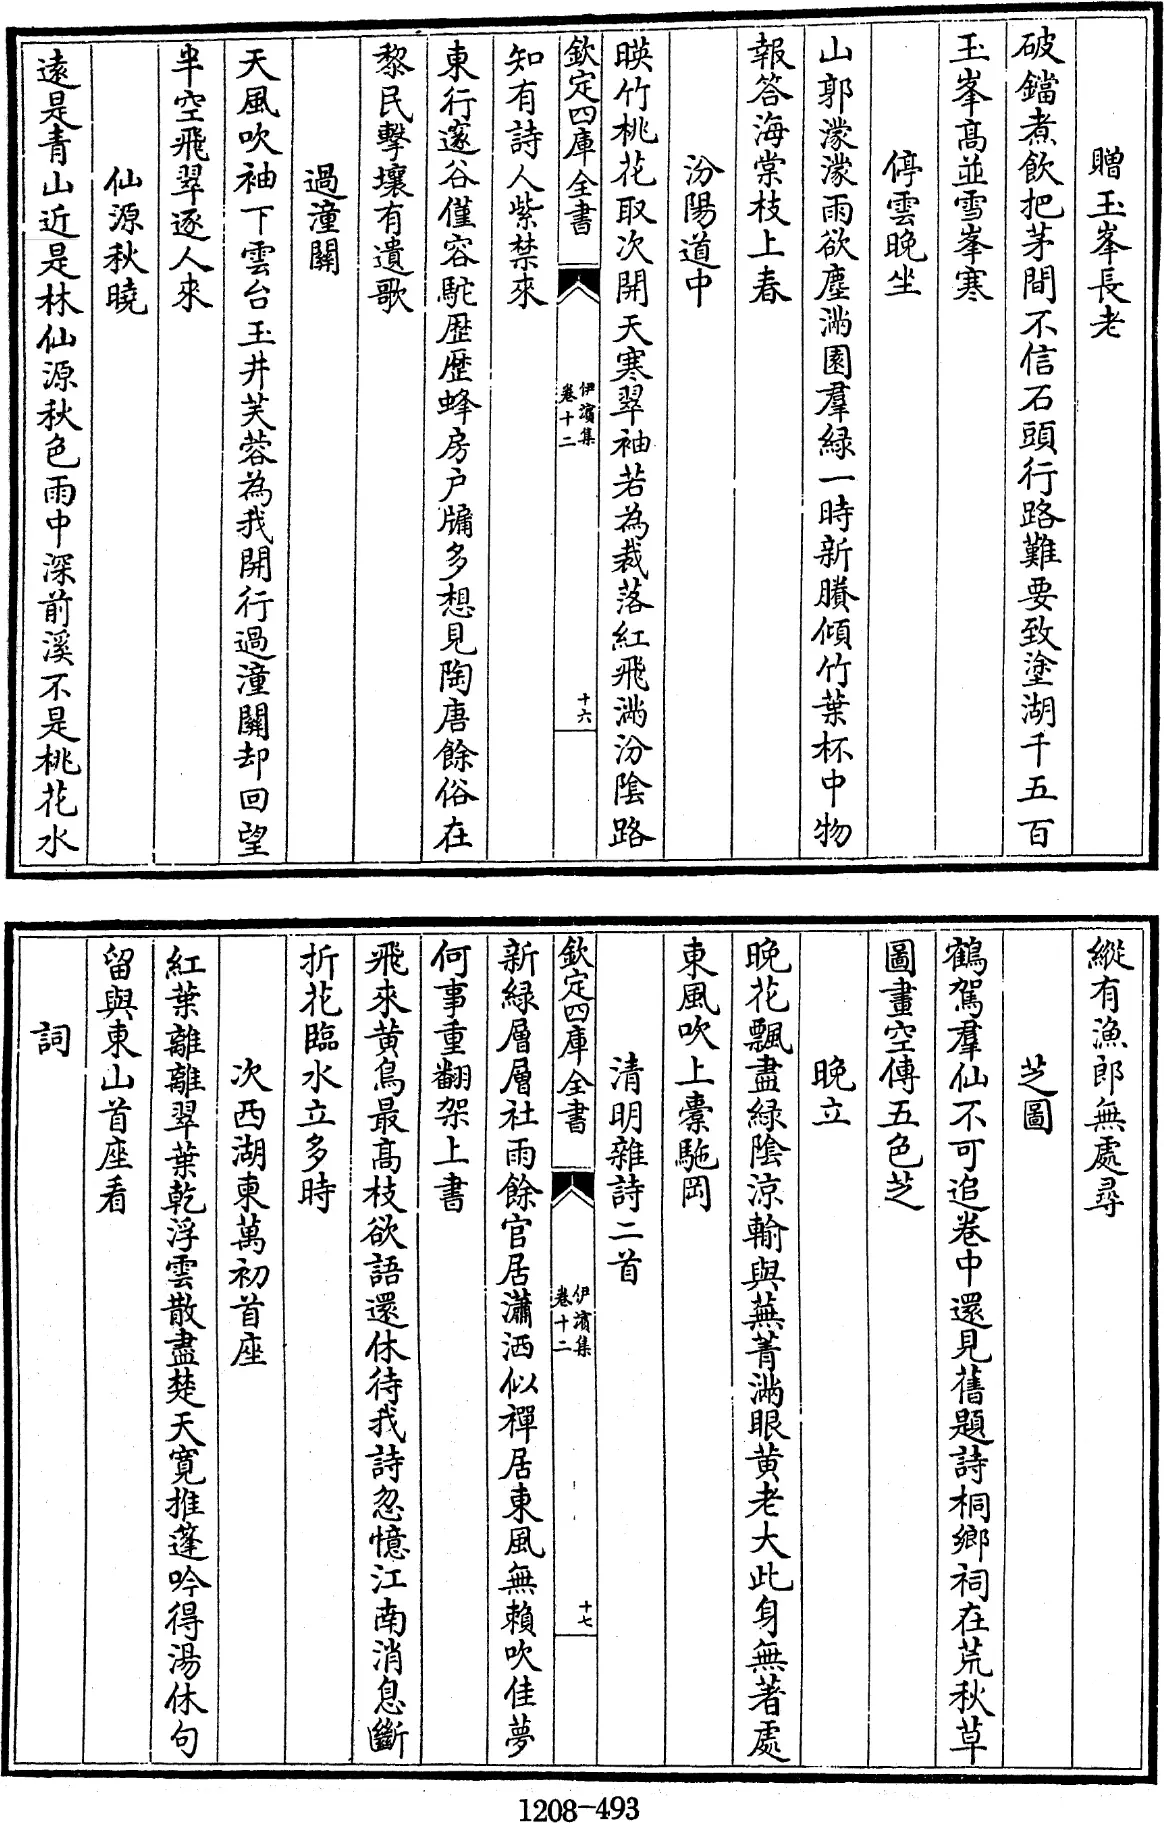 贈玉峯長老
破鐺煮飲把茅間不信石頭行路難要致塗湖千五百
玉峯高並雪峯寒
停雲晚坐
山郭濛濛雨欲塵滿園羣緑一時新賸傾竹葉杯中物
報答海棠枝上春
汾陽道中
暎竹桃花取次開天寒翠袖若為裁落紅飛滿汾陰路
欽定四庫全書
伊濱集
卷十二
十六
知有詩人紫禁來
東行邃谷僅容駝歴歴蜂房户牖多想見陶唐餘俗在
黎民擊壤有遺歌
過潼關
天風吹袖下雲台玉井芙蓉為我開行過潼關却回望
半空飛翠逐人來
仙源秋曉
遠是青山近是林仙源秋色雨中深前溪不是桃花水
縱有漁郎無處尋
芝圖
鶴駕羣仙不可追卷中還見舊題詩桐鄉祠在荒秋草
圖畫空傳五色芝
晚立
晚花飄盡緑陰涼輸與蕪菁滿眼黄老大此身無著處
東風吹上橐駞岡
清明雜詩二首
欽定四庫全書
伊濱集
卷十二
十七
新緑層層社雨餘官居瀟洒似禪居東風無賴吹佳夢
何事重翻架上書
飛來黄鳥最高枝欲語還休待我詩忽憶江南消息斷
折花臨水立多時
次西湖東萬初首座
紅葉離離翠葉乾浮雲散盡楚天寬推蓬吟得湯休句
留與東山首座看
詞
1208-493